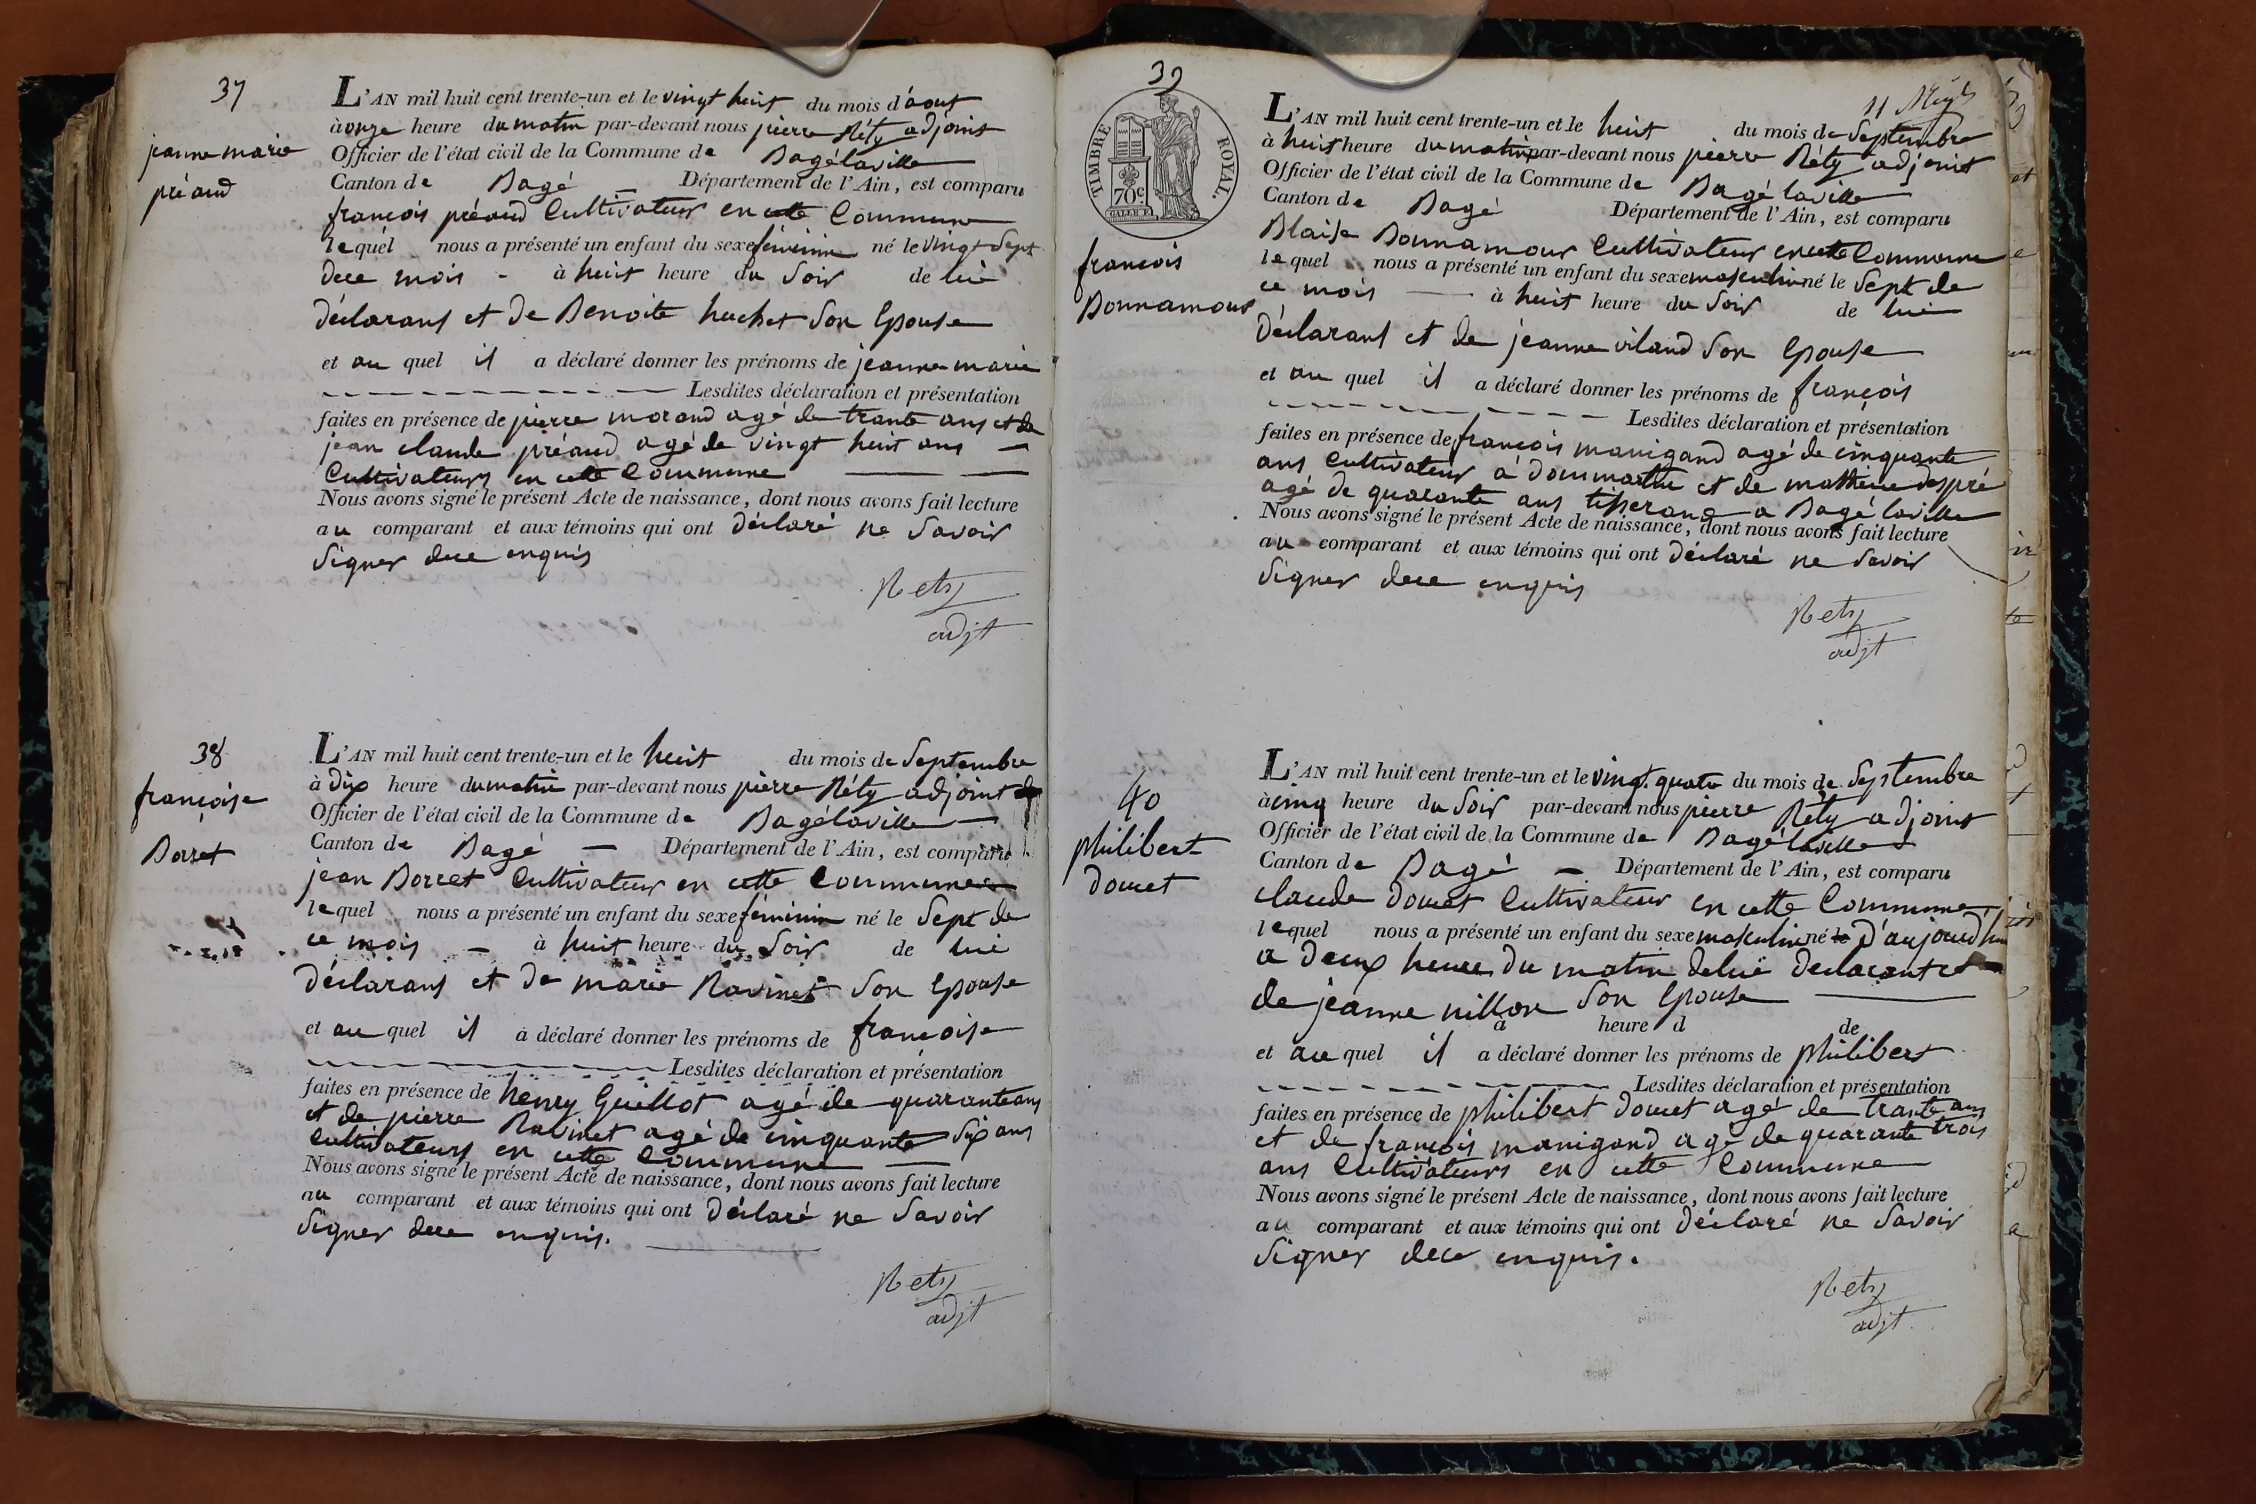 37
jeanne marie
préaud
L'AN mil huit cent trente-un et le vingt huit du mois d'aout
à onze heure du matin par-devant nous pierre Réty adjoint
Officier de l'état civil de la Commune de Bagé laville
Canton de Bagé Département de l'Ain, est comparu
françois préaud Cultivateur en cette Commune
lequel nous a présenté un enfant du sexe féminin né le vingt Sept
dece mois - à huit heure du Soir de lui
déclarant et de Benoite huchet Son Epouse
et au quel il a déclaré donner les prénoms de jeanne marie
Lesdites déclaration et présentation
faites en présence de pierre morand agé de trante ans et de
jean claude préaud agé de vingt huit ans
Cultivateurs en cette Commune
Nous avons signé le présent Acte de naissance, dont nous avons fait lecture
au comparant et aux témoins qui ont déclaré ne Savoir
Signer dece enquis
Rety
adjt
38
françoise
Borret
L'AN mil huit cent trente-un et le huit du mois de Septembre
à dix heure du matin par-devant nous pierre Réty adjoint
Officier de l'état civil de la Commune de Bagé laville
Canton de Bagé Département de l'Ain, est comparu
jean Borret Cultivateur en cette Commune
lequel nous a présenté un enfant du sexe féminin né le Sept de
ce mois - à huit heure du Soir de lui
déclarant et de marie Ravinet Son Epouse
et au quel il a déclaré donner les prénoms de françoise
Lesdites déclaration et présentation
faites en présence de henry Guillot agé de quarante ans
et de pierre Ravinet agé de cinquante Six ans
Cultivateurs en cette Commune
Nous avons signé le présent Acte de naissance, dont nous avons fait lecture
au comparant et aux témoins qui ont déclaré ne Savoir
Signer dece enquis.
Rety
adjt
39
TIMBRE ROYAL.
70c
françois
Bonnamour
L'AN mil huit cent trente-un et le huit du mois de Septembre
à huit heure du matin par-devant nous pierre Réty adjoint
Officier de l'état civil de la Commune de Bagé laville
Canton de Bagé Département de l'Ain, est comparu
Blaise Bonnamour Cultivateur en cette Commune
lequel nous a présenté un enfant du sexe masculin né le Sept de
ce mois à huit heure du Soir de lui
déclarant et de jeanne viland Son Epouse
et au quel il a déclaré donner les prénoms de françois
Lesdites déclaration et présentation
faites en présence de françois manigand agé de cinquante
ans Cultivateur a dommartin et de mathieu després
agé de quarante ans tisserand a Bagé laville
Nous avons signé le présent Acte de naissance, dont nous avons fait lecture
au comparant et aux témoins qui ont déclaré ne Savoir
Signer dece enquis
Rety
adjt
40
philibert
doucet
L'AN mil huit cent trente-un et le vingt quatre du mois de Septembre
à cinq heure du Soir par-devant nous pierre Réty adjoint
Officier de l'état civil de la Commune de Bagé laville
Canton de Bagé Département de l'Ain, est comparu
claude doucet Cultivateur en cette Commune
lequel nous a présenté un enfant du sexe masculin né le d'aujourd'hui
a deux heure du matin de lui declarant et
de jeanne nillon Son Epouse
à heure d de
et au quel il a déclaré donner les prénoms de philibert
Lesdites déclaration et présentation
faites en présence de philibert doucet agé de trante ans
et de françois manigand agé de quarante trois
ans Cultivateurs en cette Commune
Nous avons signé le présent Acte de naissance, dont nous avons fait lecture
au comparant et aux témoins qui ont déclaré ne Savoir
Signer dece enquis.
Rety
adjt